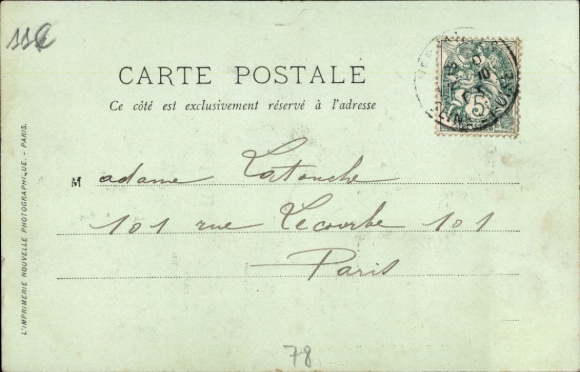 CARTE POSTALE
Ce côté est exclusivement réservé à l'adresse
Madame Latouche
101 rue Lecourbe 101
Paris
78
L'IMPRIMERIE NOUVELLE PHOTOGRAPHIQUE - PARIS.
5
10
SEINE